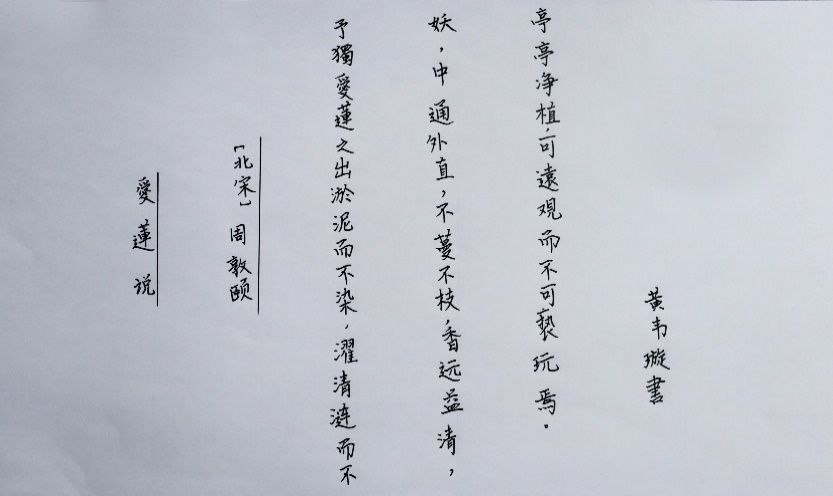 愛蓮说
[北宋]周敦颐
予獨愛蓮之出淤泥而不染，濯清涟而不
妖，中通外直，不蔓不枝，香远益清，
亭亭净植，可遠观而不可亵玩焉。
黄韦璇書